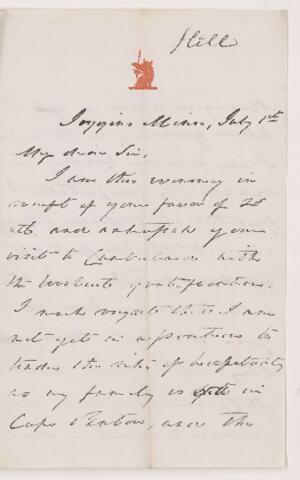 Hill
Joggins Mines, July 1st
My dear Sir,
I am this evening in
receipt of your favor of 28
ulto. and anticipate your
visit to Cumberland with
the liveliest gratification.
I much regret that I am
not yet in a position to
tender the rites of hospitality
as my family is still in
Cape Breton, where the